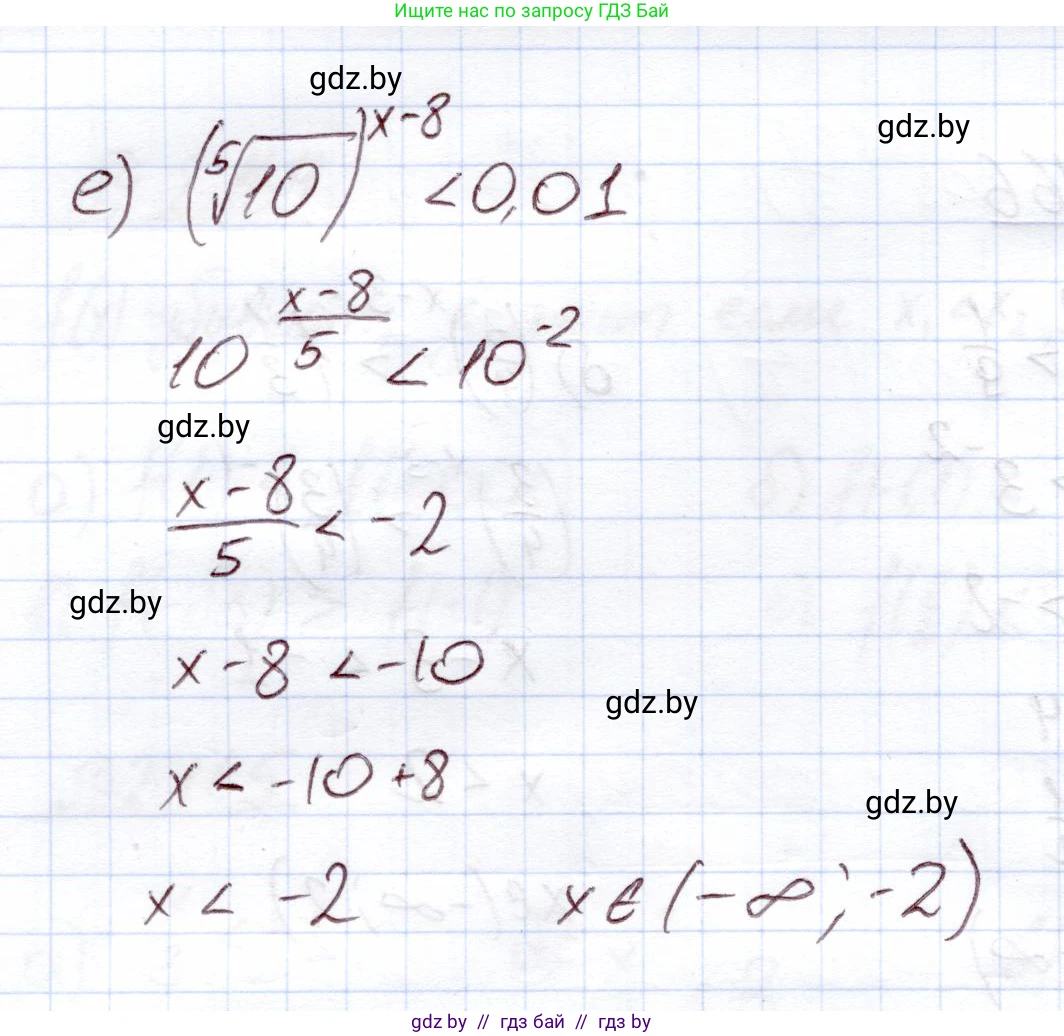 Ищите нас по запросу ГДЗ Бай
gdz.by
gdz.by
е) (⁵√10)^(x-8) < 0,01
10^((x-8)/5) < 10^(-2)
gdz.by
(x-8)/5 < -2
gdz.by
x-8 < -10
gdz.by
x < -10+8
gdz.by
x < -2 x ∈ (-∞; -2)
gdz by // гдз бай // гдз by